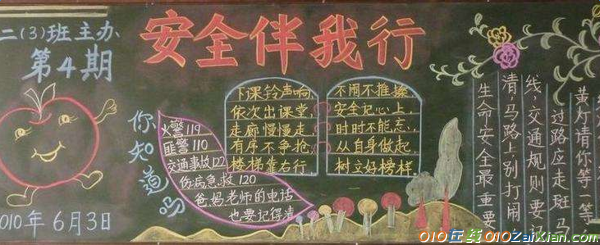 二(3)班主办
第4期
安全伴我行
你知道吗
火警119
匪警110
交通事故122
伤病急救120
爸妈老师的电话
也要记得清
下课铃声响
依次出课堂,
走廊慢慢走,
有序不争抢,
楼梯靠右行
不闹不推搡
安全记心上,
时时不能忘,
从自身做起,
树立好榜样
黄灯请你等一等
过路应走斑马
线,交通规则要
清,马路上别打闹
生命安全最重要
010年6月3日
010在线010zaixian.com